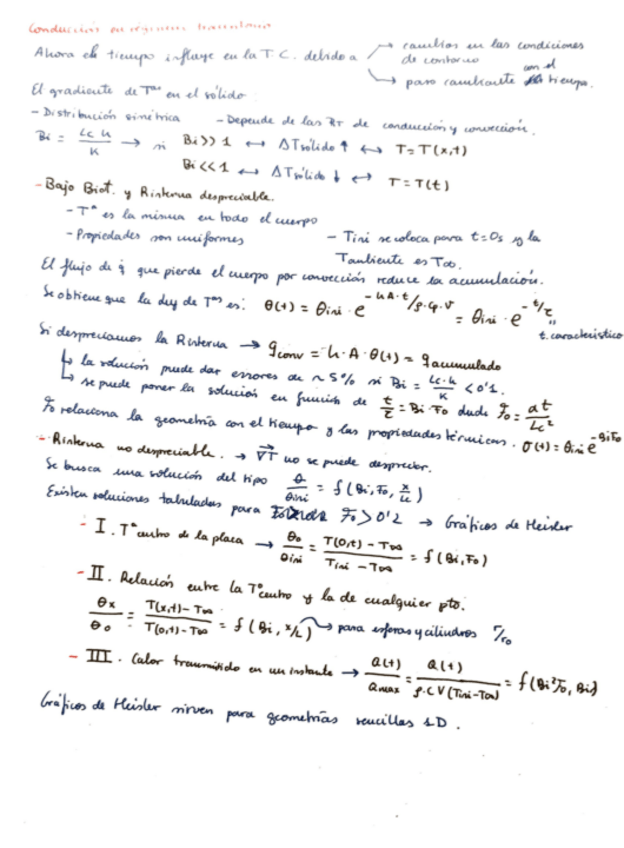 Conducción en régimen transitorio
Ahora el tiempo influye en la T.C. debido a → cambios en las condiciones de contorno
→ paso cambiante con el tiempo.
El gradiente de Tᵃˢ en el sólido
- Distribución simétrica - Depende de las RT de conducción y convección.
Bi = Lc h / K → si Bi >> 1 ↔ ΔTsólido ↑ ↔ T = T(x,t)
Bi << 1 ↔ ΔTsólido ↓ ↔ T = T(t)
- Bajo Biot. y Rinterna despreciable.
- Tᵃ es la misma en todo el cuerpo
- Propiedades son uniformes - Tini se coloca para t=0s y la
Tambiente es T∞.
El flujo de q̇ que pierde el cuerpo por convección reduce la acumulación.
Se obtiene que la ley de Tᵃˢ es: θ(t) = θini · e^(-hA·t/ρ·Cp·V) = θini · e^(-t/τ)
t. característico
Si despreciamos la Rinterna → qconv = h·A·θ(t) = qacumulado
↳ la solución puede dar errores de ~5% si Bi = Lc·h / K < 0'1.
↳ se puede poner la solución en función de t/τ = Bi·Fo donde Fo = αt / Lc²
Fo relaciona la geometría con el tiempo y las propiedades térmicas. θ(t) = θini e^(-BiFo)
- Rinterna no despreciable. → ∇T no se puede despreciar.
Se busca una solución del tipo θ/θini = f(Bi, Fo, x/Lc)
Existen soluciones tabuladas para Fo > 0'2 → Gráficos de Heisler
- I. Tᵃ centro de la placa → θo/θini = T(0,t) - T∞ / Tini - T∞ = f(Bi, Fo)
- II. Relación entre la Tᵃcentro y la de cualquier pto.
θx/θo = T(x,t) - T∞ / T(0,t) - T∞ = f(Bi, x/L) → para esferas y cilindros r/ro
- III. Calor transmitido en un instante → Q(t)/Qmax = Q(t) / ρ·C V (Tini - T∞) = f(Bi²Fo, Bi)
Gráficos de Heisler sirven para geometrías sencillas 1D.